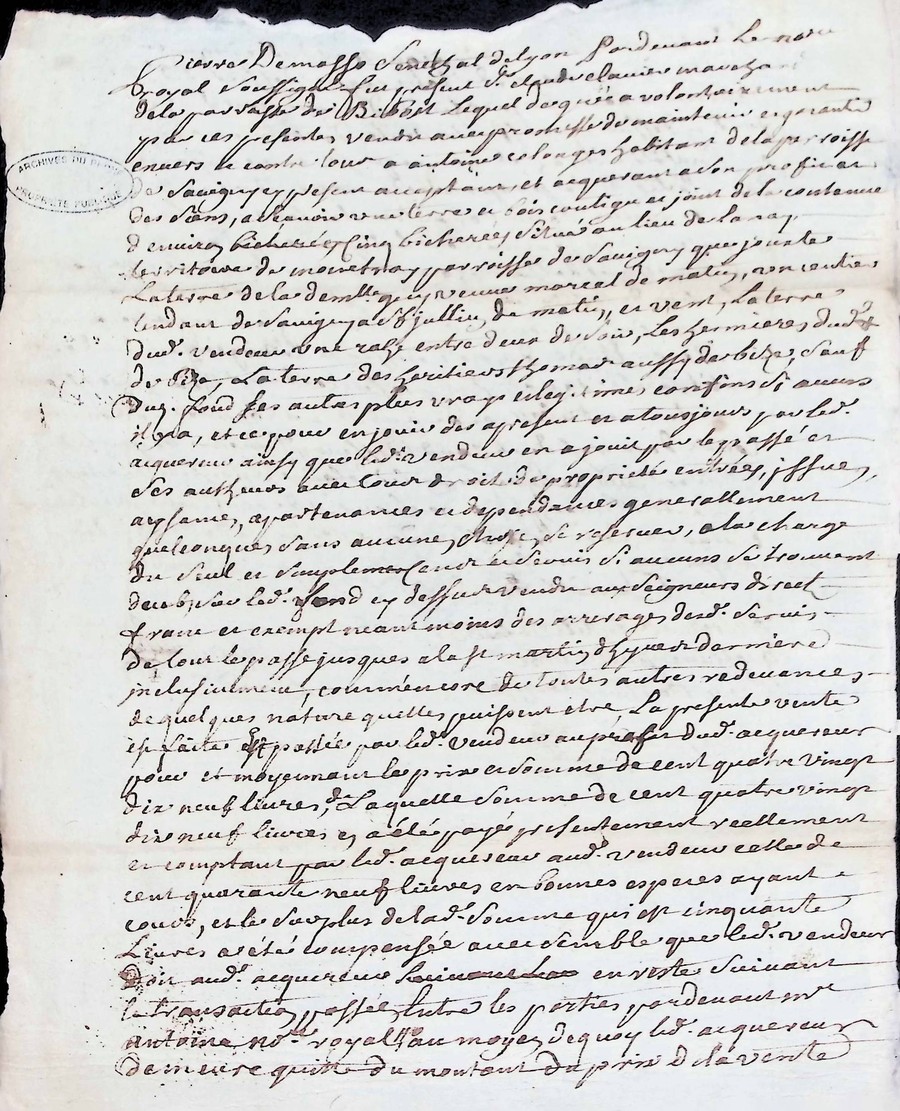 Pierre Demasso Senechal de Lyon Pardevant Le no.re
royal soussigné fut present S.r Claude Clavier marchand
de la parroisse de Bibost Lequel de gré a volontairement
par ces presentes vendu avec promesse de maintenir et garantir
envers et contre tous a antoine colonges habitant de la parroisse
de Savigny present acceptant et acquerant a son profit et
des siens, a sçavoir une terre et bois contigu et joint de la contenue
d'environ cinq bicherées, situé au lieu de
territoire de parroisse de Savigny que jouxte
La terre de la dem.lle veuve moreal de matin, un sentier
tendant de Savigny a S.t jullin, de matin, et vent, La terre
dud. vendeur une raze entre deux de soir, Les hermieres dud.
de bize, La terre des heritiers thomas aussy de bize, Sauf
dud. fond ses autres plus vrays et legitimes confins si aucuns
il y a, et ce pour en jouir des apresent et a tousjours par led.
acquereur ainsy que led. vendeur en a jouit par le passé et
ses autheurs avec tous droits de propriété entrées, issues,
aysances, apartenances et dependances generallement
quelconques sans aucunes choses se reserver, a la charge
du seul et simple cens et servis si aucuns se trouvent
deubs sur led. fond cy dessus vendu aux Seigneurs direct
franc et exempt neantmoins des arrerages desd. servis
de tout le passé jusques a la st martin d'hyver derniere
inclusivement, comme encore de toutes autres redevances
de quelques nature quelles puissent etre, La presente vente
est faite et passée par led. vendeur au profit dud. acquereur
pour et moyennant le prix et somme de cent quatre vingt
dix neuf livres, Laquelle somme de cent quatre vingt
dix neuf livres en a été payé presentement reellement
et comptant par led. acquereur aud. vendeur celle de
cent quarante neuf livres en bonnes especes ayant
cours, et le surplus de lad. somme qui est cinquante
Livres a été compensée avec semble que led. vendeur
doit aud. acquereur en reste suivant
la transaction passée entre les parties pardevant m.re
antoine no.re royal au moyen dequoy led. acquereur
demeure quitte du montant du prix de la vente
ARCHIVES DU
PROPRIÉTÉ PUBLIQUE